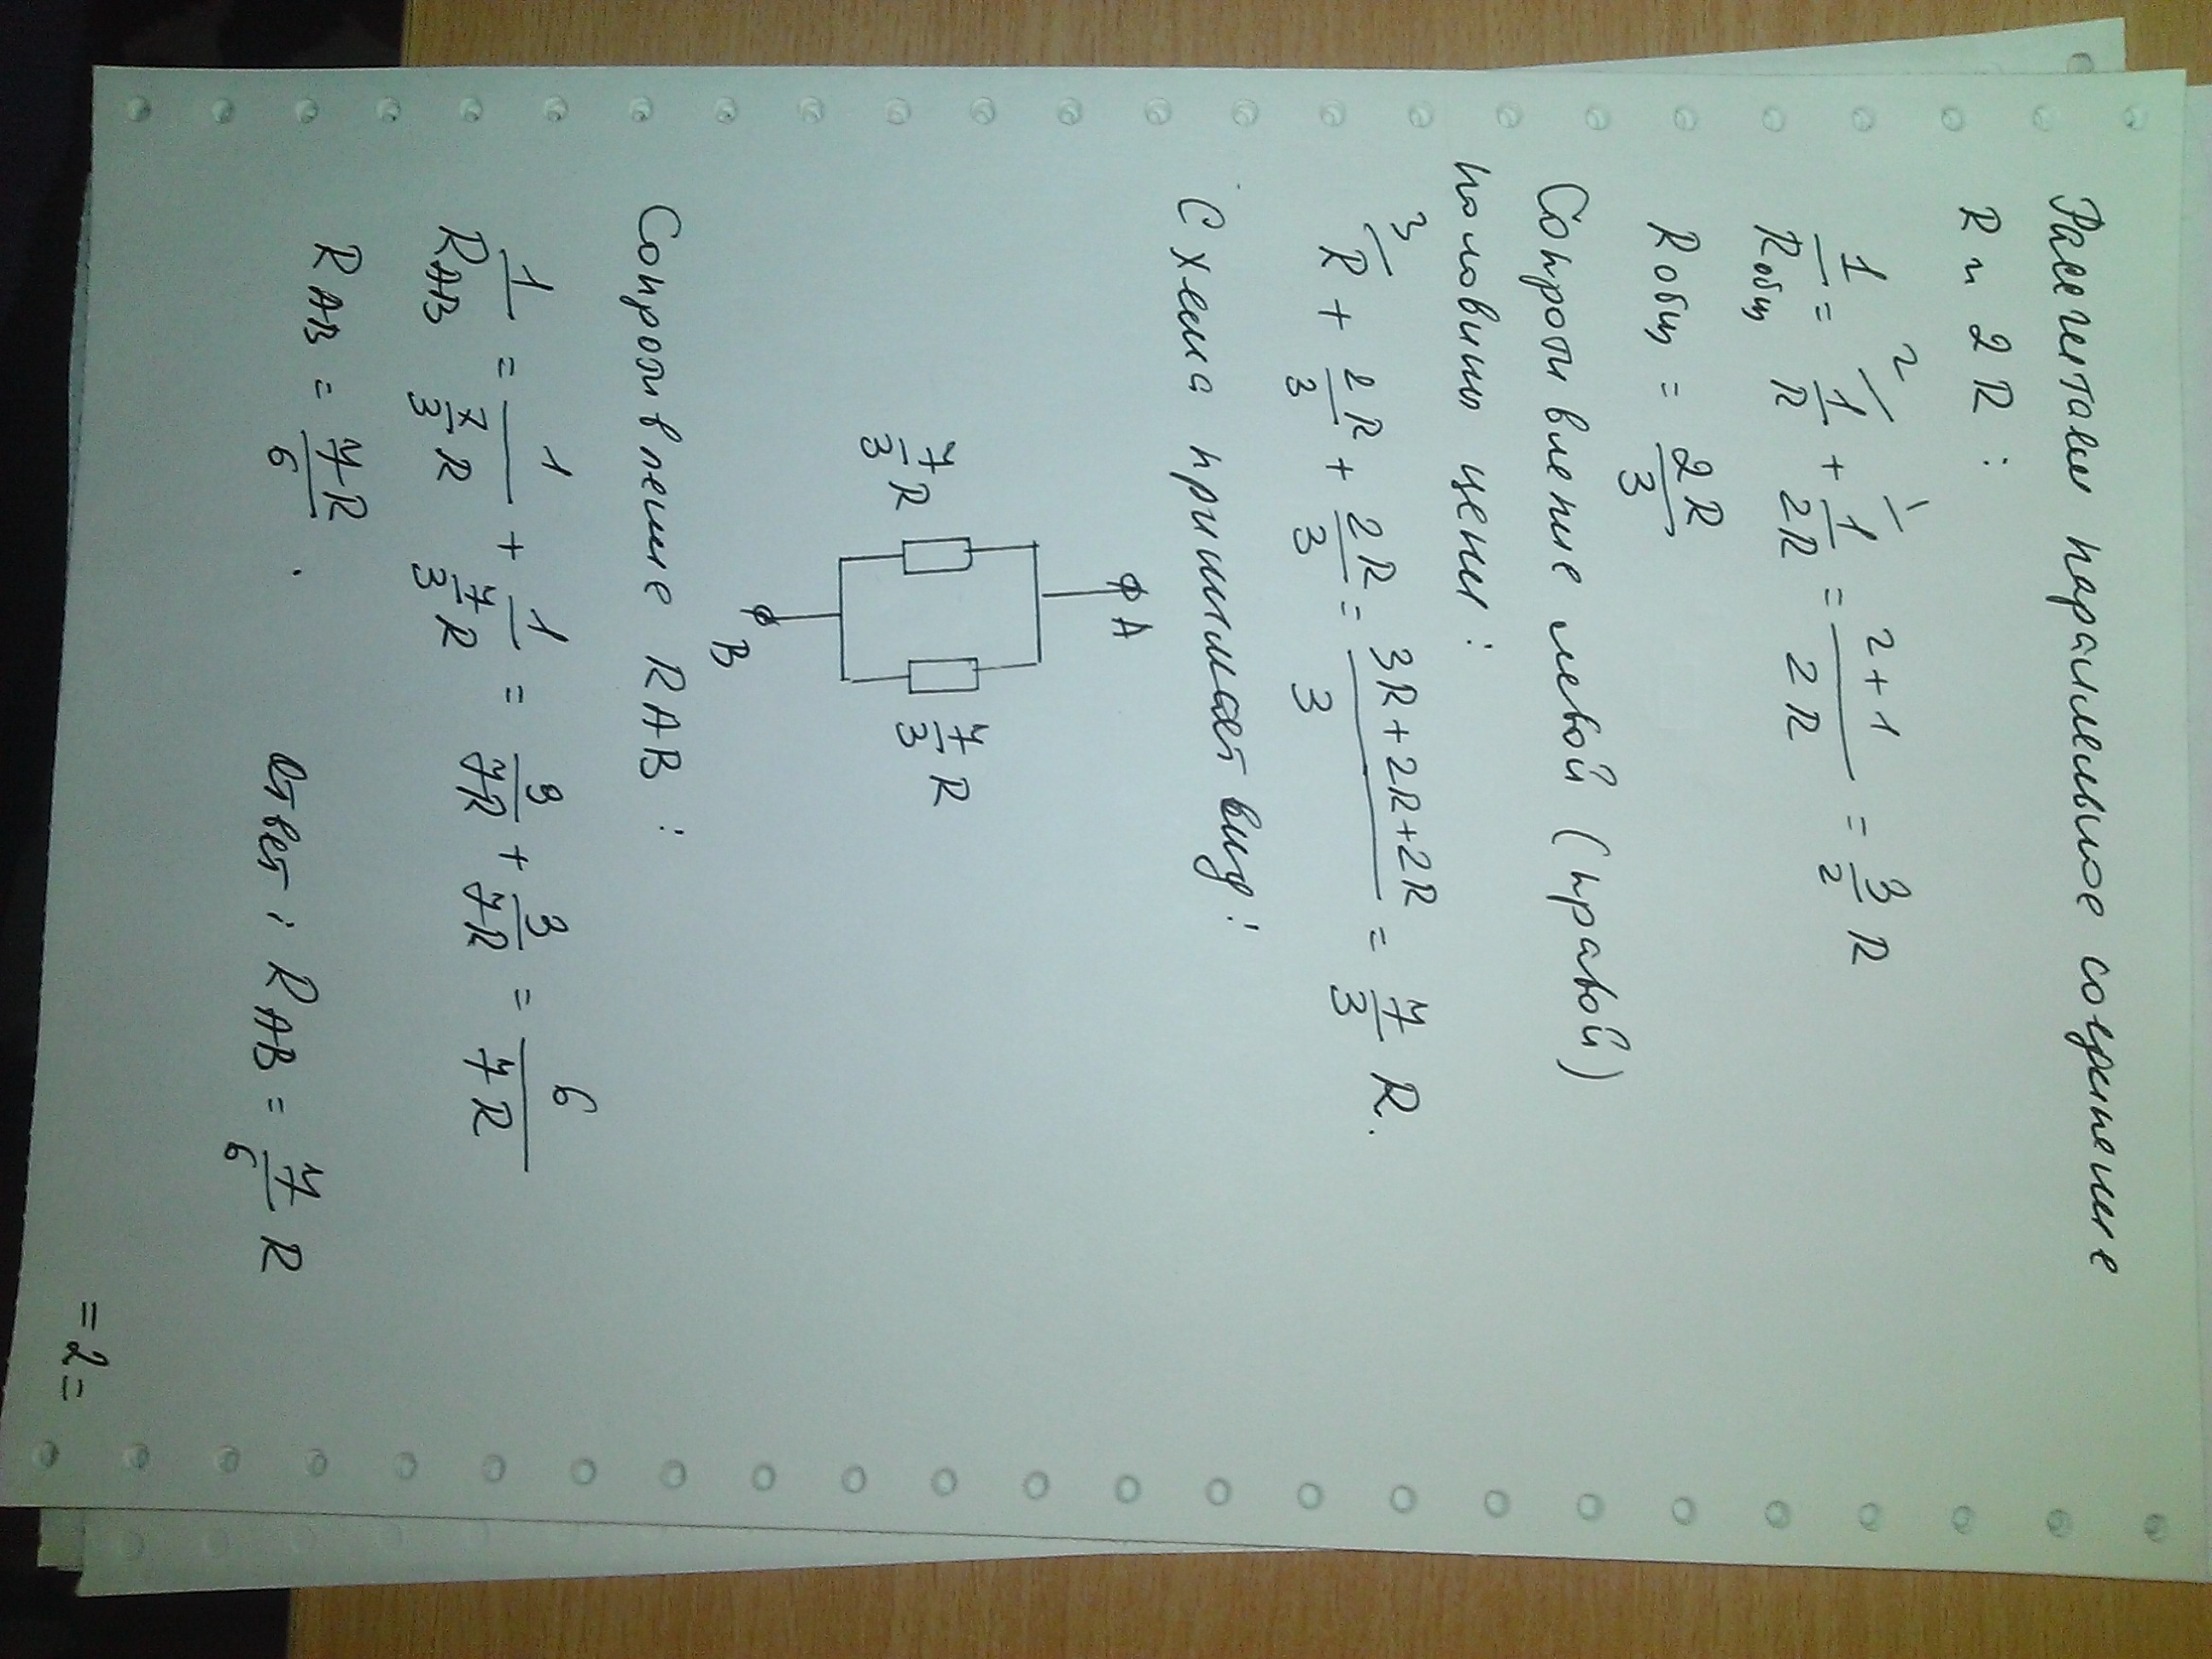 Рассчитаем параллельное соединение
R и 2R :
1/Rобщ = 1/R (2 + 1/2R (1 = 2+1/2R = 3/2 R
Rобщ = 2R/3
Сопротивление левой (правой)
половины цепи :
3/R + 2R/3 + 2R/3 = 3R+2R+2R/3 = 7/3 R.
Схема принимает вид :
A
7/3 R 7/3 R
B
Сопротивление RAB :
1/RAB = 1/7/3 R + 1/7/3 R = 3/7R + 3/7R = 6/7R
RAB = 7R/6 .
Ответ : RAB = 7/6 R
=2=